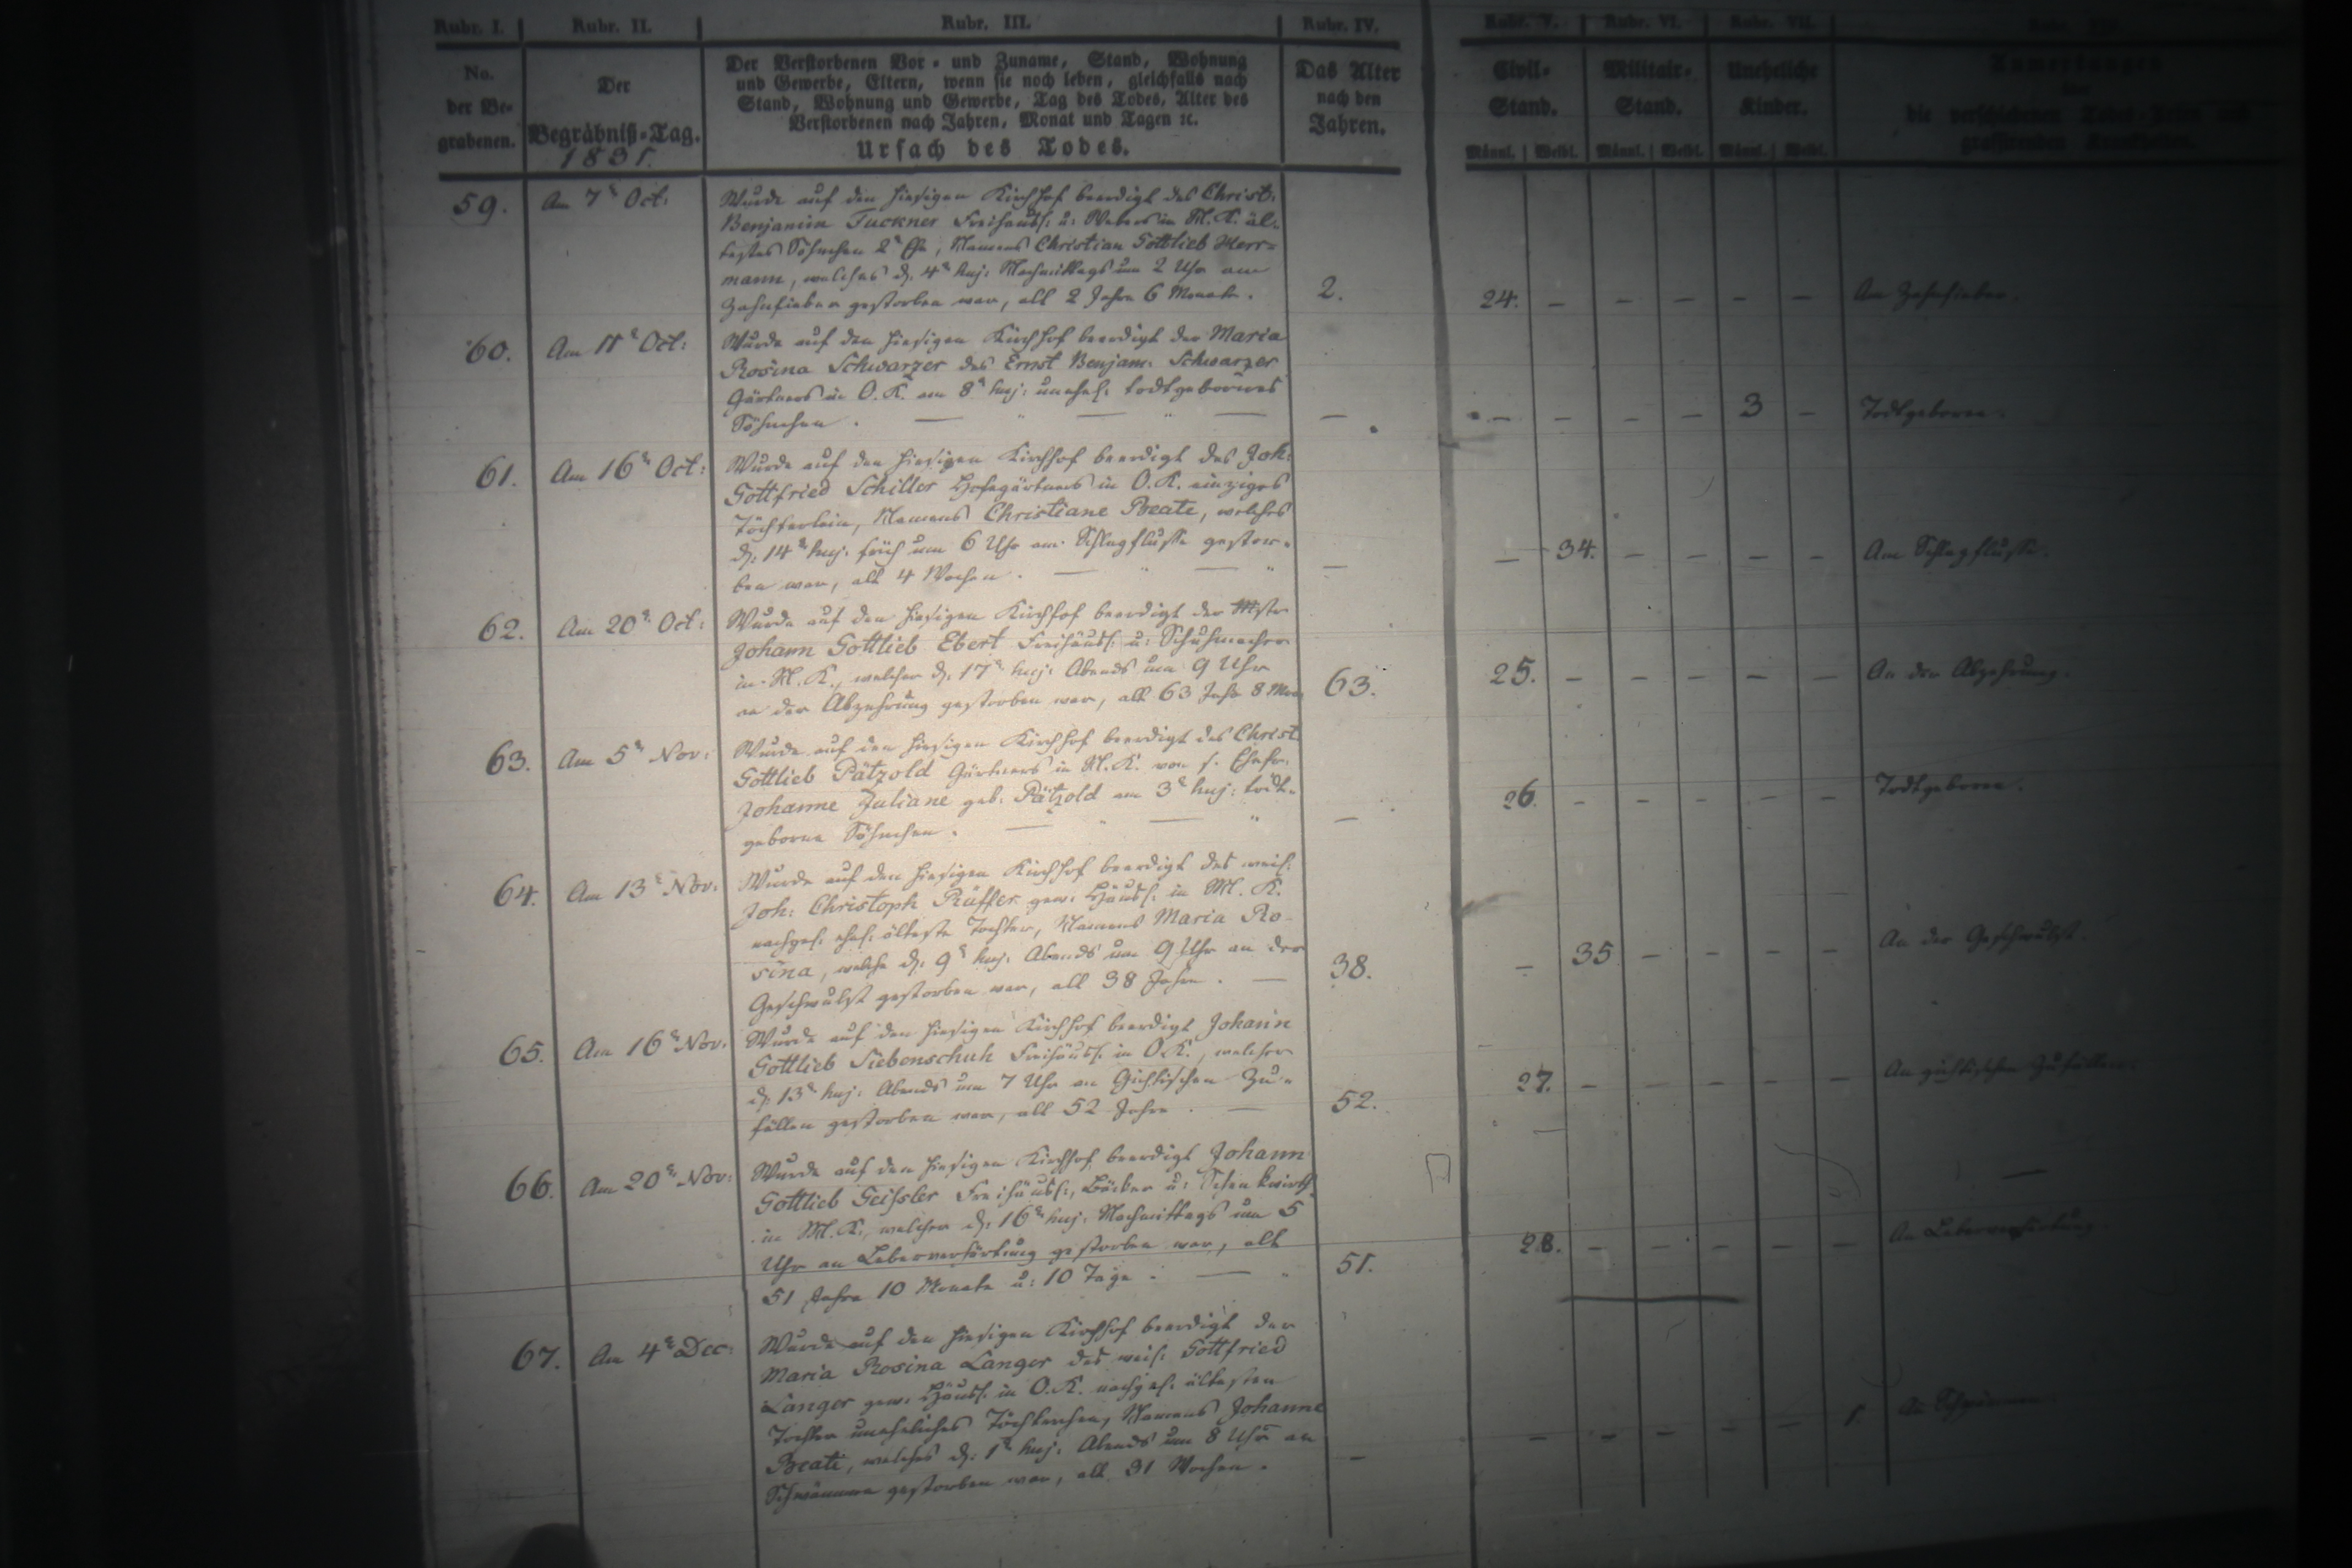 Rubr. I. Rubr. II. Rubr. III. Rubr. IV. Rubr. V. Rubr. VI. Rubr. VII.
No. der Be- grabenen.
Der Begräbniß-Tag.
1831.
Der Verstorbenen Vor- und Zuname, Stand, Wohnung
und Gewerbe, Eltern, wenn sie noch leben, gleichfalls nach
Stand, Wohnung und Gewerbe, Tag des Todes, Alter des
Verstorbenen nach Jahren, Monat und Tagen ꝛc.
Ursach des Todes.
Das Alter nach den Jahren.
Civil- Stand.
Militair- Stand.
Uneheliche Kinder.
Anmerkungen
die verschiedenen Todes-Arten und
grassirenden Krankheiten.
Männl. Weibl. Männl. Weibl. Männl. Weibl.
59. Am 7t Oct: Wurde auf den hiesigen Kirchhof beerdigt des Christ:
Benjamin Tuckner Freihäusl: u: Webers in M. K. äl-
testes Söhnchen 2r Ehe, Namens Christian Gottlieb Herr-
mann, welches d. 4t huj: Nachmittags um 2 Uhr am
Zahnfieber gestorben war, alt 2 Jahre 6 Monate. 2. 24. – – – – – Am Zahnfieber.
60. Am 11t Oct: Wurde auf den hiesigen Kirchhof beerdigt der Maria
Rosina Schwarzer des Ernst Benjam: Schwarzer
Gärtners in O. K. am 8t huj: unehel: todtgebornes
Söhnchen. — — – – – – 3 – Todtgeboren.
61. Am 16t Oct: Wurde auf den hiesigen Kirchhof beerdigt des Joh:
Gottfried Schiller Hofegärtners in O. K. einziges
Töchterlein, Namens Christiane Beate, welches
d. 14t huj: früh um 6 Uhr am Schlagflusse gestor-
ben war, alt 4 Wochen. — – 34. – – – – Am Schlagflusse.
62. Am 20t Oct: Wurde auf den hiesigen Kirchhof beerdigt der Mstr
Johann Gottlieb Ebert Freihäusl: u: Schuhmacher
in M. K., welcher d. 17t huj: Abends um 9 Uhr
an der Abzehrung gestorben war, alt 63 Jahr 8 Mon: 63. 25. – – – – – An der Abzehrung.
63. Am 5t Nov: Wurde auf den hiesigen Kirchhof beerdigt des Christ:
Gottlieb Pätzold Gärtners in M. K. von s. Ehefr.
Johanne Juliane geb: Pätzold am 3t huj: todt-
geborne Söhnchen. — 26. – – – – – Todtgeboren.
64. Am 13t Nov: Wurde auf den hiesigen Kirchhof beerdigt des weil:
Joh: Christoph Rüffer gew: Häusl: in M. K.
nachgel: ehel: älteste Tochter, Namens Maria Ro-
sina, welche d. 9t huj: Abends um 9 Uhr an der
Geschwulst gestorben war, alt 38 Jahre. — 38. – 35 – – – – An der Geschwulst.
65. Am 16t Nov: Wurde auf den hiesigen Kirchhof beerdigt Johann
Gottlieb Siebenschuh Freihäusl: in O. K., welcher
d. 13t huj: Abends um 7 Uhr an Gichtischen Zu-
fällen gestorben war, alt 52 Jahre. — 52. 27. – – – – – An gichtischen Zufällen.
66. Am 20t Nov: Wurde auf den hiesigen Kirchhof beerdigt Johann
Gottlieb Geissler Freihäusl:, Bäcker u: Schenkwirth
in M. K., welcher d: 16t huj: Nachmittags um 5
Uhr an Leberverhärtung gestorben war, alt
51 Jahre 10 Monate u: 10 Tage. — 51. 28. – – – – – An Leberverhärtung
67. Am 4t Dec: Wurde auf den hiesigen Kirchhof beerdigt der
Maria Rosina Langer des weil: Gottfried
Langer gew: Häusl: in O. K. nachgel: ältesten
Tochter uneheliches Töchterchen, Namens Johanne
Beate, welches d: 1t huj: Abends um 8 Uhr an
Schwämmen gestorben war, alt 31 Wochen. — – – – – – 1. An Schwämmen